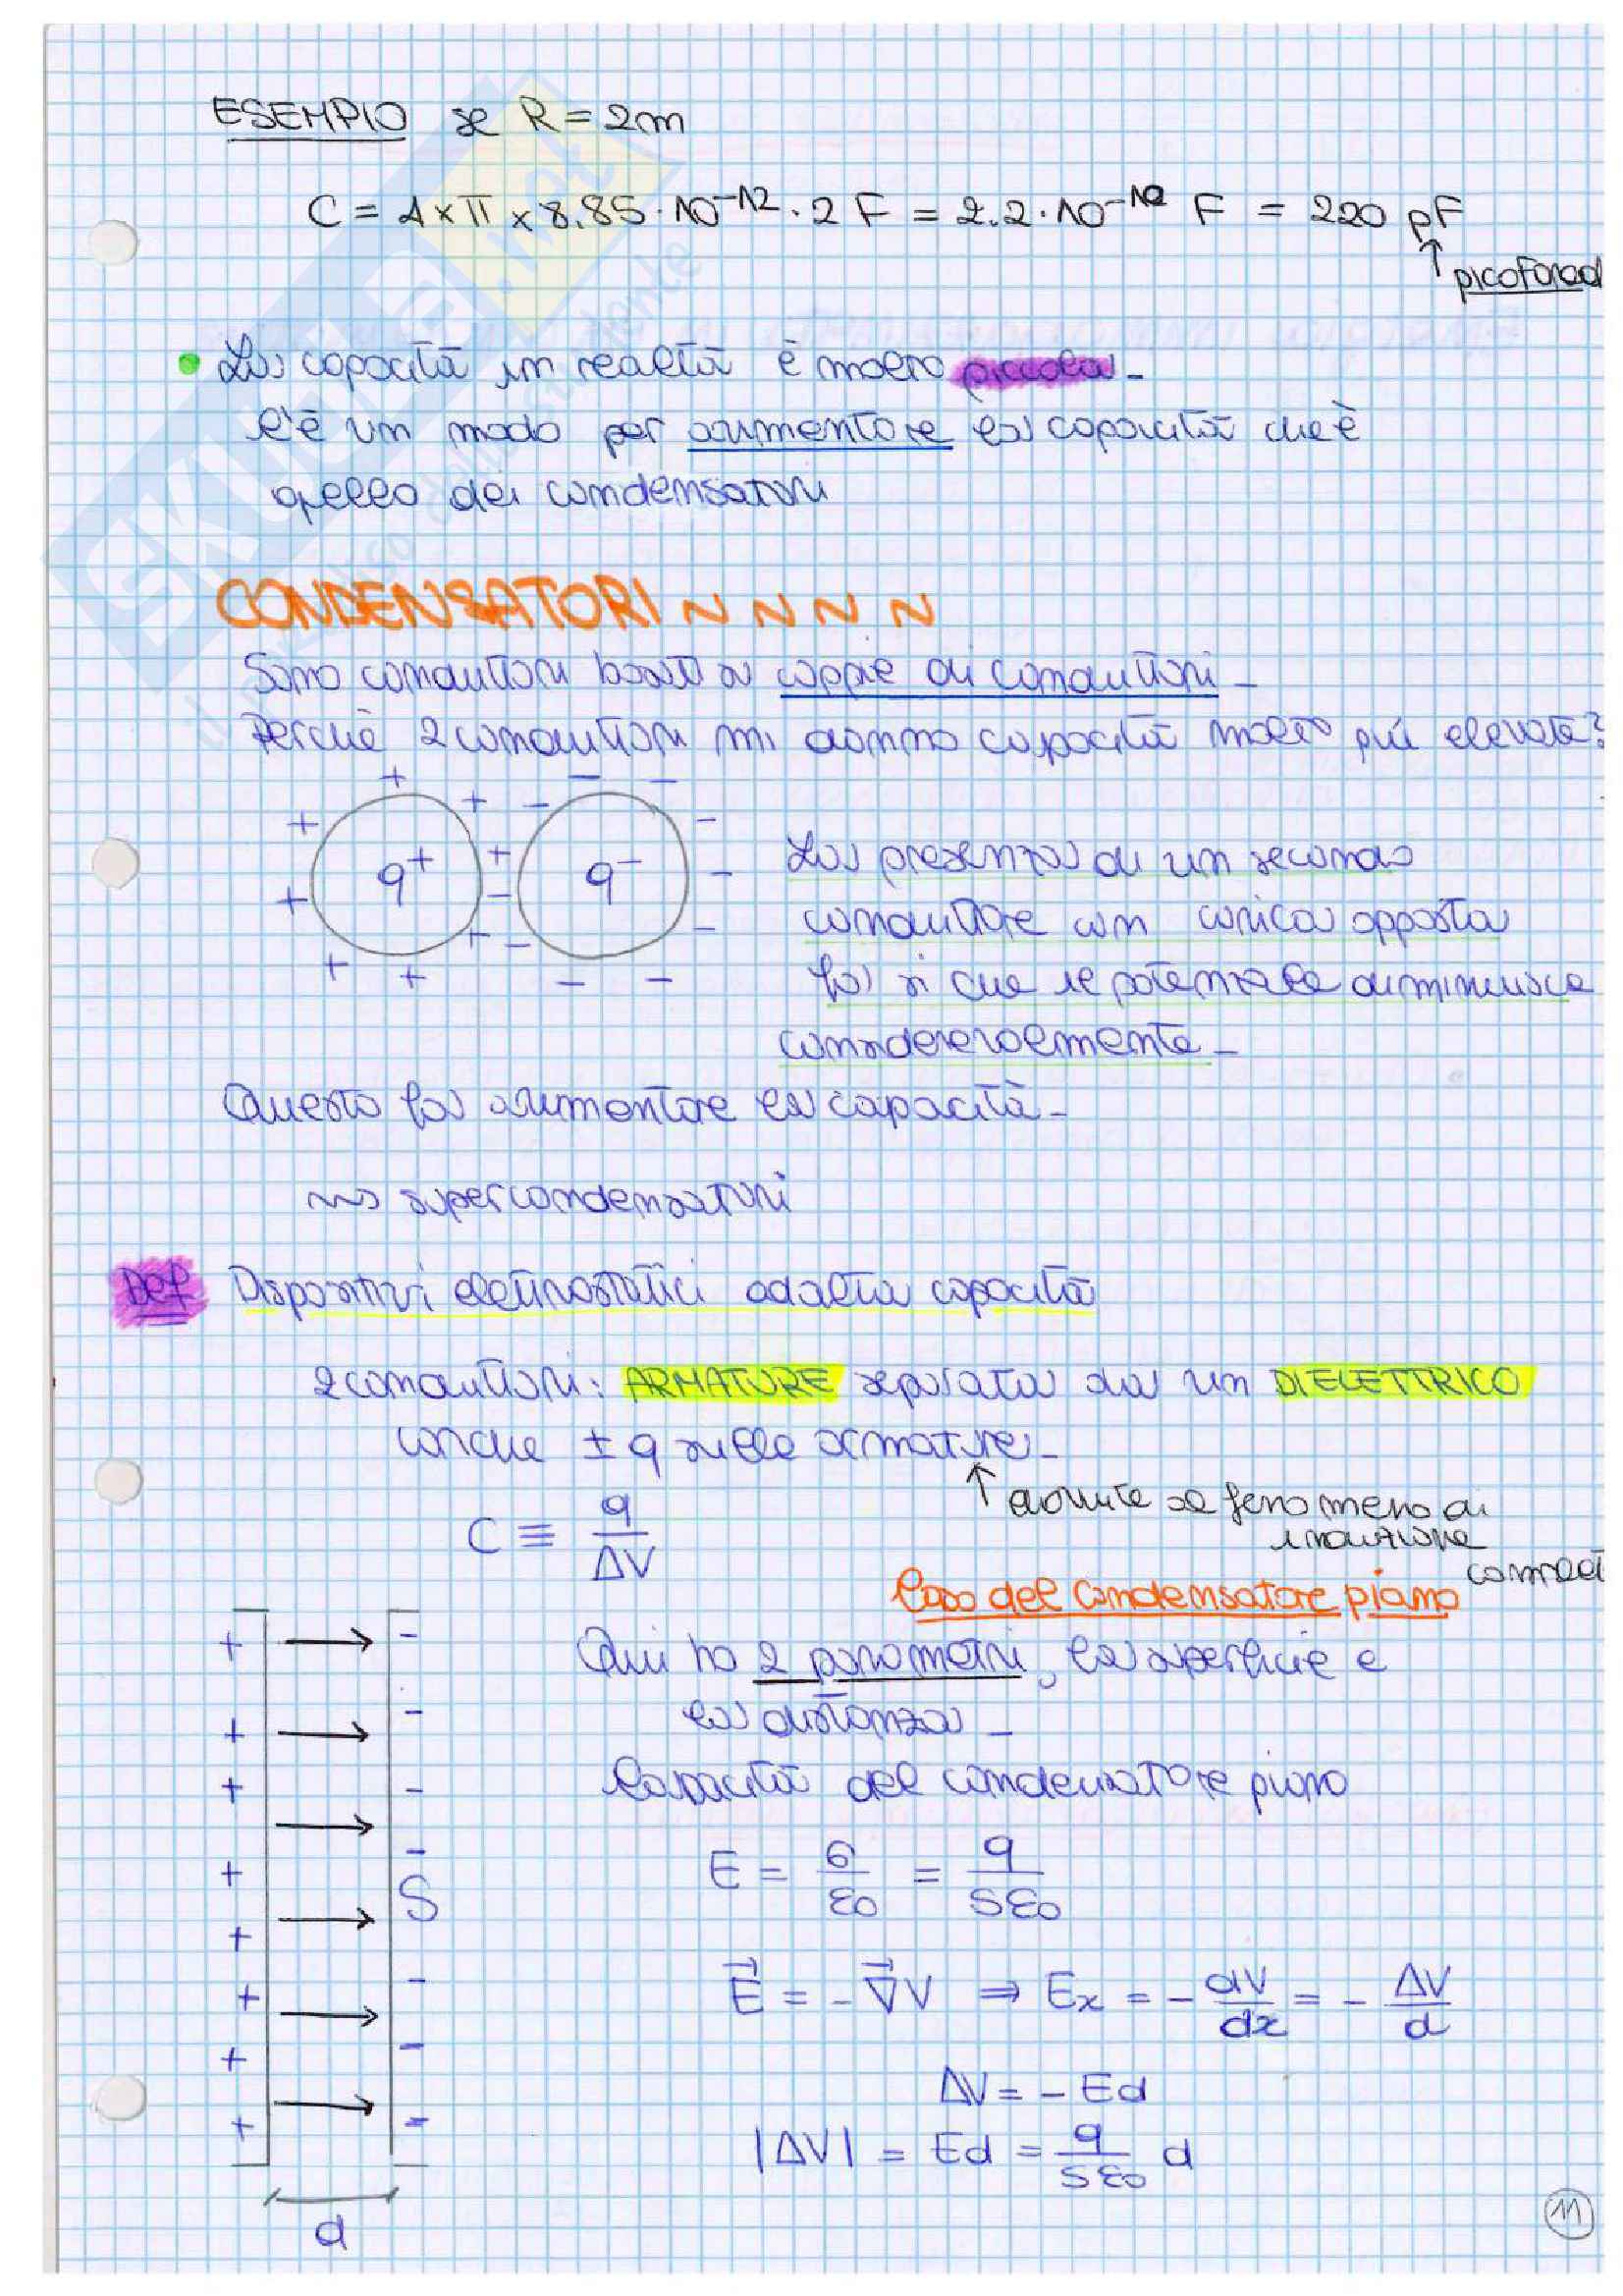 ESEMPIO se R = 2m
C = 4 x π x 8.85 · 10⁻¹² · 2 F = 2.2 · 10⁻¹⁰ F = 220 pF
↑ picoFarad
• La capacità in realtà è molto piccola -
C'è un modo per aumentare la capacità che è
quello dei condensatori
CONDENSATORI
Sono conduttori basati a coppie di conduttori -
Perchè 2 conduttori mi danno capacità molto più elevata?
q⁺ q⁻
La presenza di un secondo
conduttore con carica opposta
fa si che il potenziale diminuisce
considerevolmente -
Questo fa aumentare la capacità -
supercondensatori
Def Dispositivi elettrostatici ad alta capacità
2 conduttori: ARMATURE separata da un DIELETTRICO
cariche ± q sulle armature -
↑ dovute al fenomeno di
induzione
C ≡ q/ΔV
Caso del condensatore piano
Qui ho 2 parametri, la superficie e
la distanza -
Capacità del condensatore piano
E = σ/ε₀ = q/Sε₀
S
E⃗ = - ∇⃗V ⇒ Eₓ = - dV/dx = - ΔV/d
ΔV = - Ed
|ΔV| = Ed = q/Sε₀ d
d
11
SKUOLA.net